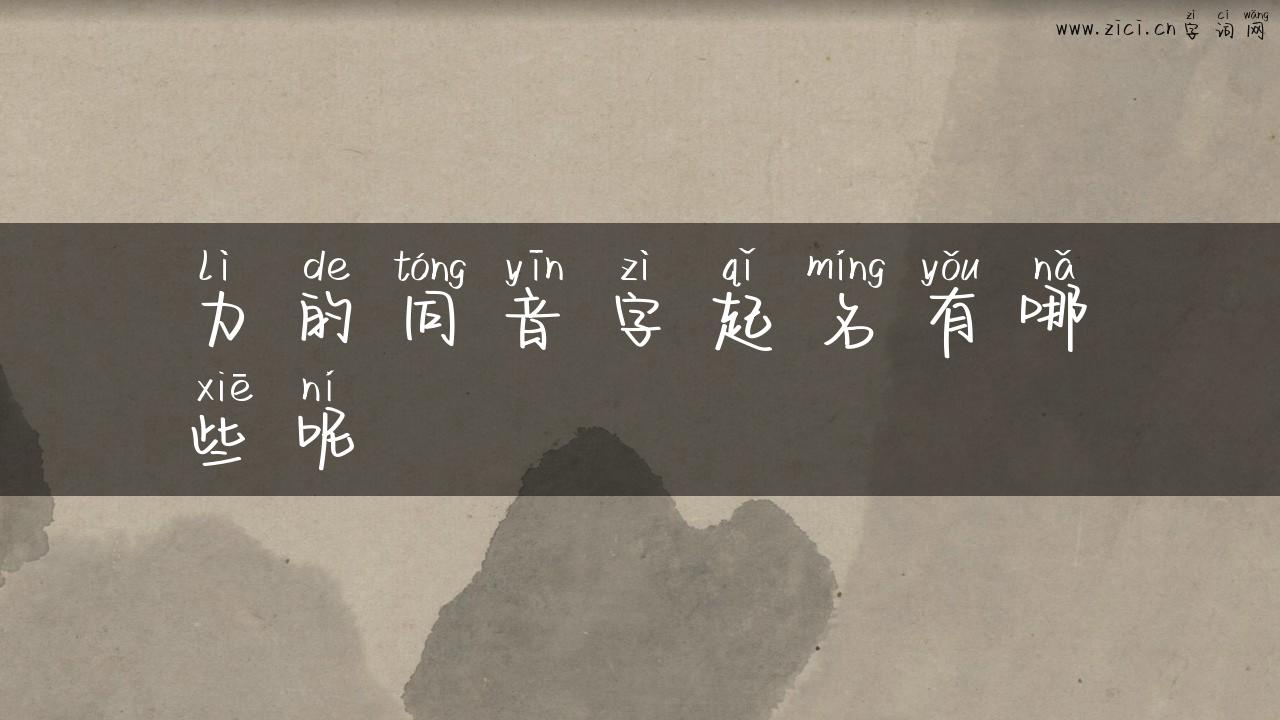 zì cí wǎng
www.zici.cn 字 词 网
lì de tóng yīn zì qǐ míng yǒu nǎ
力 的 同 音 字 起 名 有 哪
xiē ní
些 呢